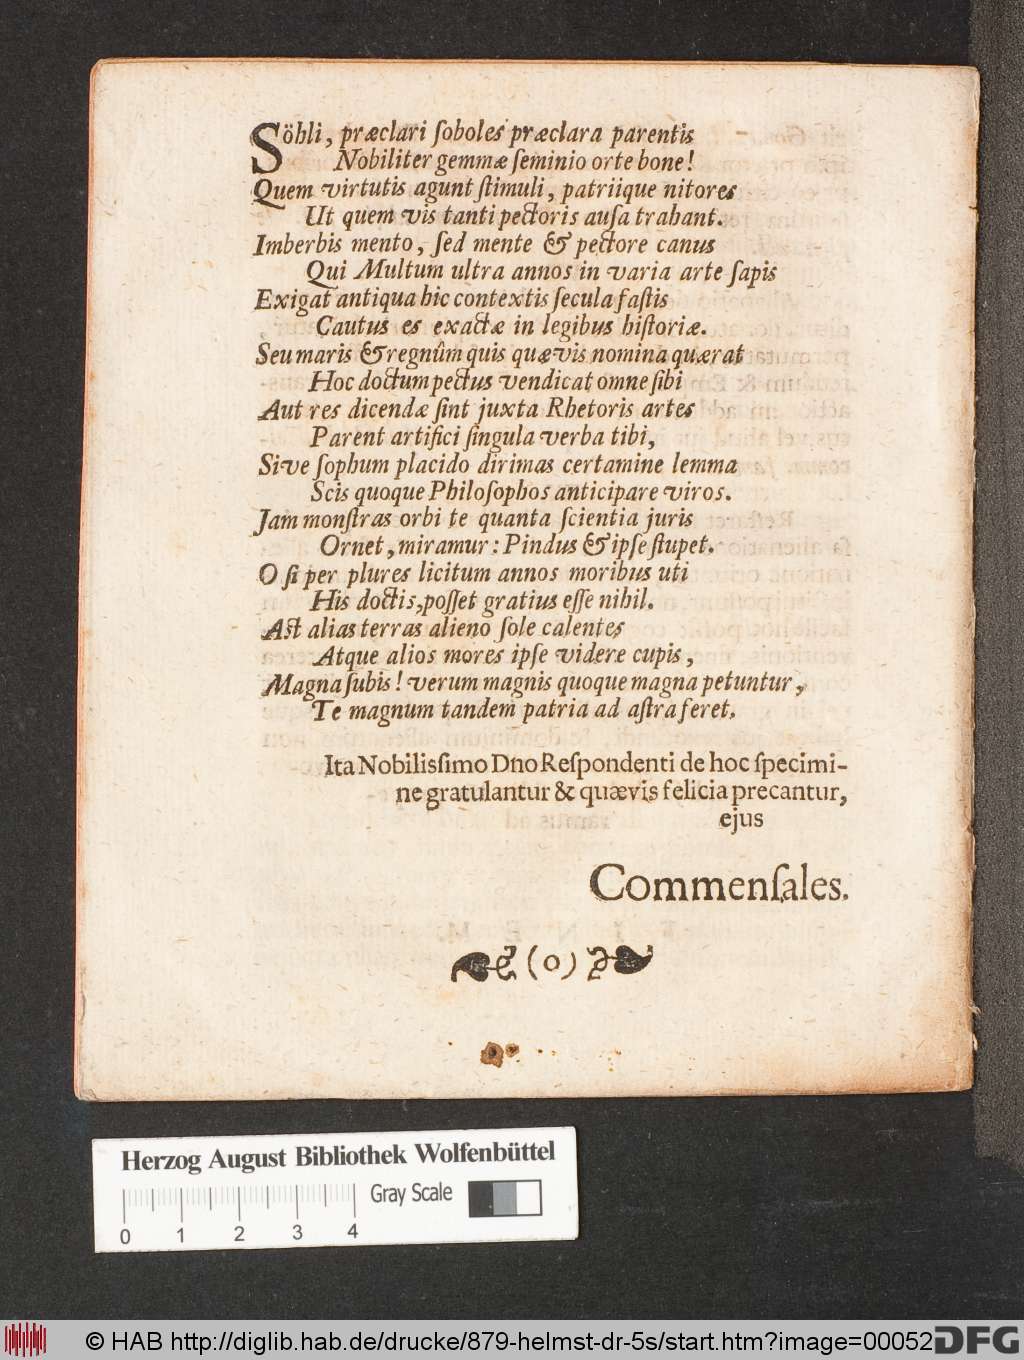 Söhli, præclari ſoboles præclara parentis
Nobiliter gemmæ ſeminio orte bone!
Quem virtutis agunt ſtimuli, patriique nitores
Ut quem vis tanti pectoris auſa trabant.
Imberbis mento, ſed mente & pectore canus
Qui Multum ultra annos in varia arte ſapis
Exigat antiqua hic contextis ſecula faſtis
Cautus es exactæ in legibus hiſtoriæ.
Seu maris & regnûm quis quævis nomina quærat
Hoc doctum pectus vendicat omne ſibi
Aut res dicendæ ſint juxta Rhetoris artes
Parent artifici ſingula verba tibi,
Sive ſophum placido dirimas certamine lemma
Scis quoque Philoſophos anticipare viros.
Jam monſtras orbi te quanta ſcientia juris
Ornet, miramur: Pindus & ipſe ſtupet.
O ſi per plures licitum annos moribus uti
His doctis, poſſet gratius eſſe nihil.
Aſt alias terras alieno ſole calentes
Atque alios mores ipſe videre cupis,
Magna ſubis! verum magnis quoque magna petuntur,
Te magnum tandem patria ad aſtra feret.
Ita Nobilisſimo Dno Reſpondenti de hoc ſpecimi-
ne gratulantur & quævis felicia precantur,
ejus
Commenſales.
(o)
Herzog August Bibliothek Wolfenbüttel
Gray Scale
0 1 2 3 4
© HAB http://diglib.hab.de/drucke/879-helmst-dr-5s/start.htm?image=00052
DFG